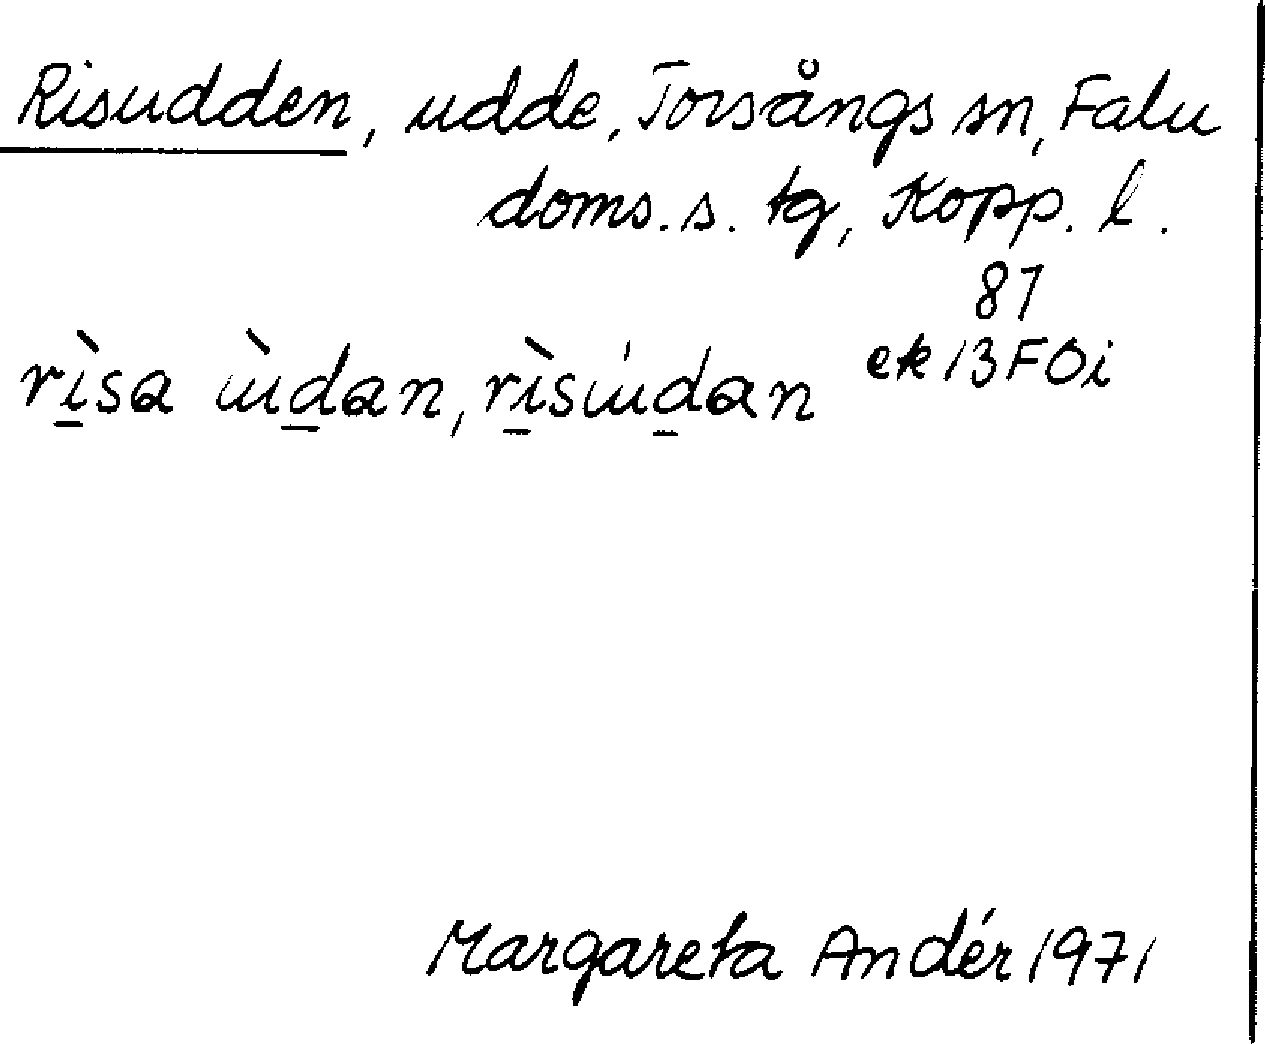 Risudden, udde, Torsångs sn, Falu
doms. s. tg, Kopp. l.
87
rìsa ùdan, rìsùdan ek 13FOi
Margareta Andér 1971